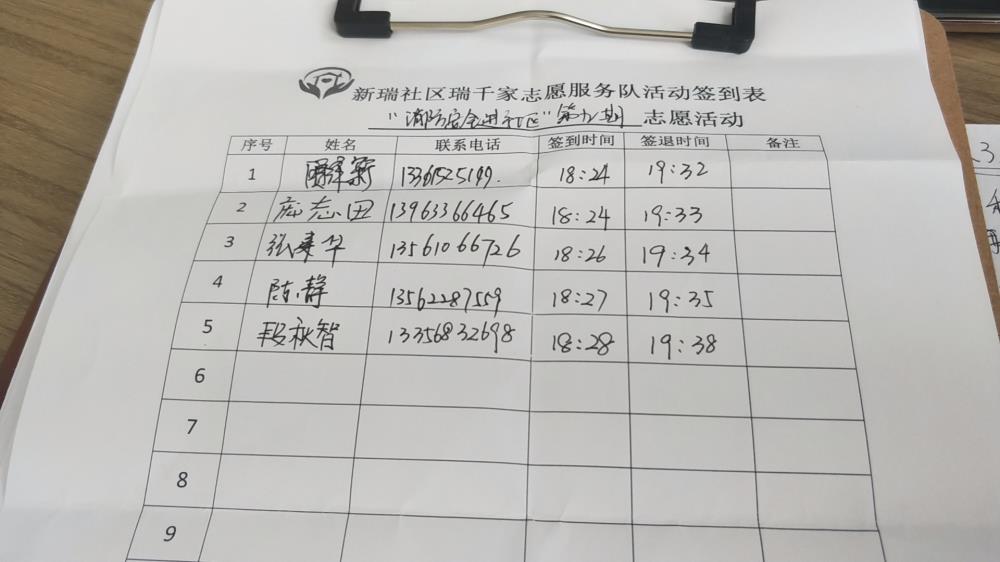 新瑞社区瑞千家志愿服务队活动签到表
"消防安全进社区"第九期 志愿活动
序号 姓名 联系电话 签到时间 签退时间 备注
1 18:24 19:32
2 志田 13963366465 18:24 19:33
3 张春华 13561066726 18:26 19:34
4 陈静 13562287559 18:27 19:35
5 段秋智 13356832698 18:28 19:38
6
7
8
9
3